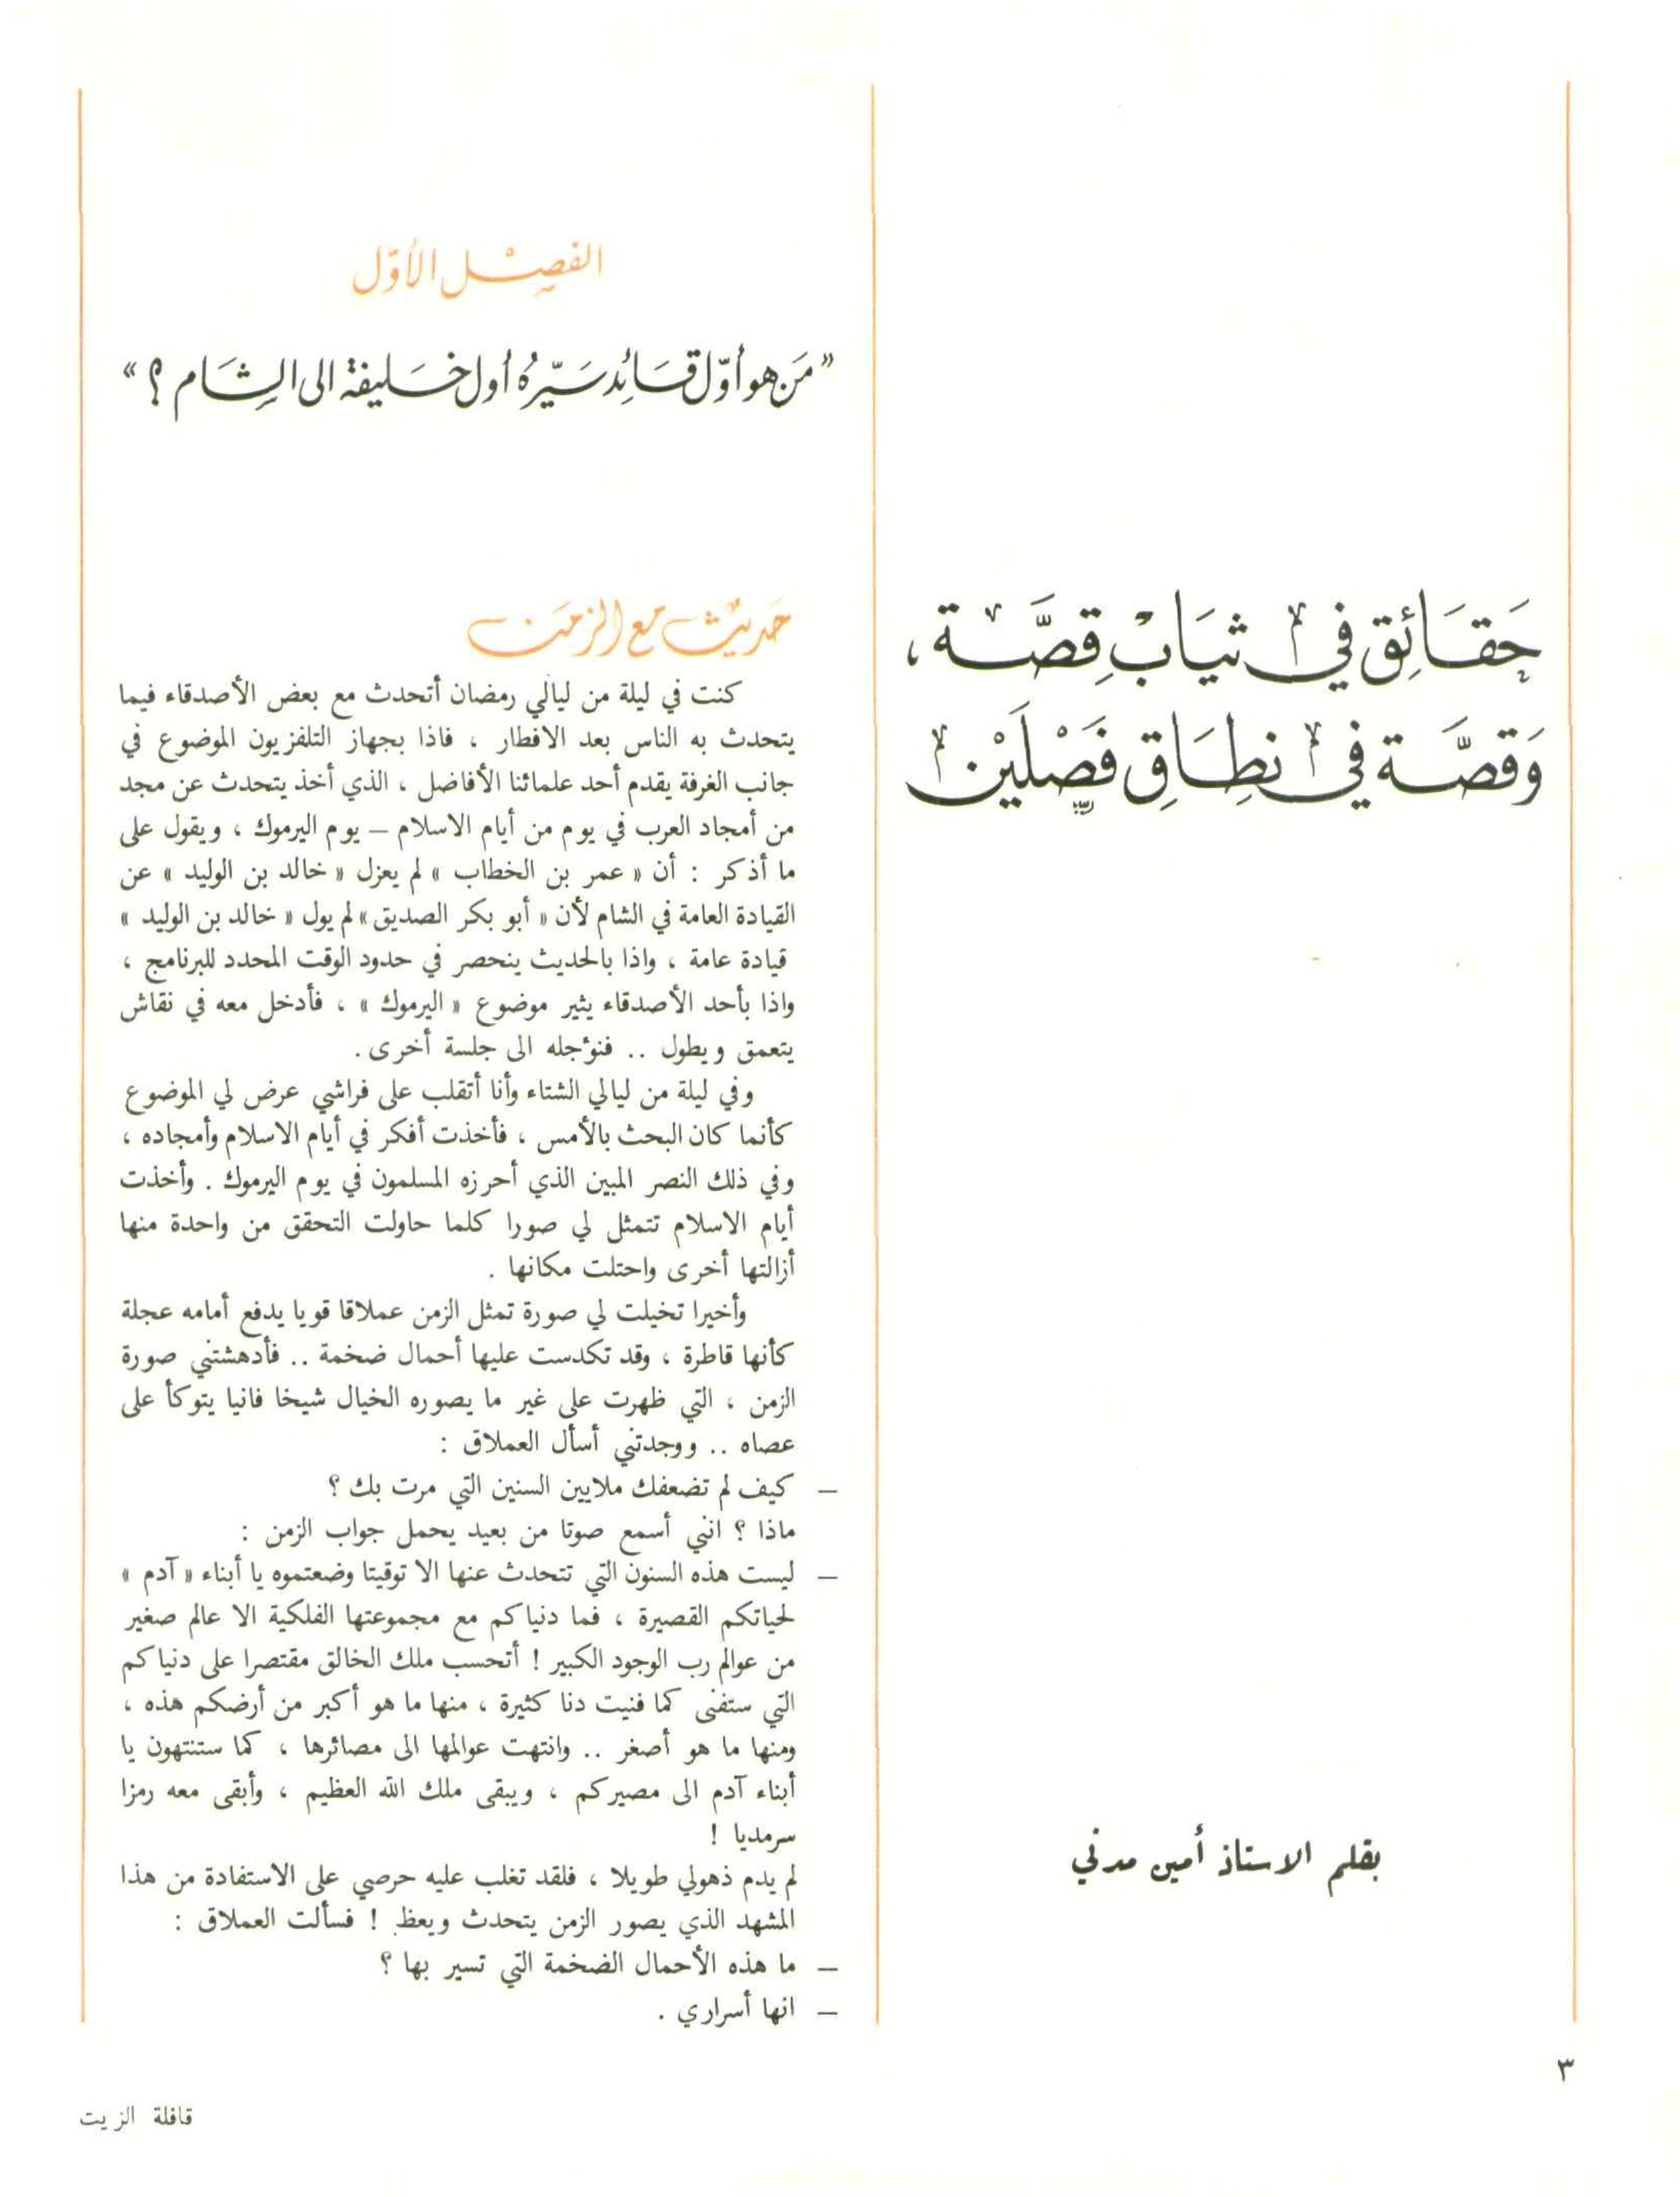 حَقَائِق في ثيَابْ قِصَّة،
وَقصَّة في نطَاقِ فَصْلَيْن
بقلم الاستاذ أمين مدني
الفصْل الأوّل
«مَن هو أوّل قَائِد سَيّرهُ أول خَليفة الى الشَام ؟»
حَديث مع الزمَن
كنت في ليلة من ليالي رمضان أتحدث مع بعض الأصدقاء فيما
يتحدث به الناس بعد الافطار ، فاذا بجهاز التلفزيون الموضوع في
جانب الغرفة يقدم أحد علمائنا الأفاضل ، الذي أخذ يتحدث عن مجد
من أمجاد العرب في يوم من أيام الاسلام — يوم اليرموك ، ويقول على
ما أذكر : أن « عمر بن الخطاب » لم يعزل « خالد بن الوليد » عن
القيادة العامة في الشام لأن « أبو بكر الصديق » لم يول « خالد بن الوليد »
قيادة عامة ، واذا بالحديث ينحصر في حدود الوقت المحدد للبرنامج ،
واذا بأحد الأصدقاء يثير موضوع « اليرموك » ، فأدخل معه في نقاش
يتعمق ويطول .. فنؤجله الى جلسة أخرى .
وفي ليلة من ليالي الشتاء وأنا أتقلب على فراشي عرض لي الموضوع
كأنما كان البحث بالأمس ، فأخذت أفكر في أيام الاسلام وأمجاده ،
وفي ذلك النصر المبين الذي أحرزه المسلمون في يوم اليرموك . وأخذت
أيام الاسلام تتمثل لي صورا كلما حاولت التحقق من واحدة منها
أزالتها أخرى واحتلت مكانها .
وأخيرا تخيلت لي صورة تمثل الزمن عملاقا قويا يدفع أمامه عجلة
كأنها قاطرة ، وقد تكدست عليها أحمال ضخمة .. فأدهشتني صورة
الزمن ، التي ظهرت على غير ما يصوره الخيال شيخا فانيا يتوكأ على
عصاه .. ووجدتني أسأل العملاق :
— كيف لم تضعفك ملايين السنين التي مرت بك ؟
ماذا ؟ انني أسمع صوتا من بعيد يحمل جواب الزمن :
— ليست هذه السنون التي تتحدث عنها الا توقيتا وضعتموه يا أبناء « آدم »
لحياتكم القصيرة ، فما دنياكم مع مجموعتها الفلكية الا عالم صغير
من عوالم رب الوجود الكبير ! أتحسب ملك الخالق مقتصرا على دنياكم
التي ستفنى كما فنيت دنا كثيرة ، منها ما هو أكبر من أرضكم هذه ،
ومنها ما هو أصغر .. وانتهت عوالمها الى مصائرها ، كما ستنتهون يا
أبناء آدم الى مصيركم ، ويبقى ملك الله العظيم ، وأبقى معه رمزا
سرمديا !
لم يدم ذهولي طويلا ، فلقد تغلب عليه حرصي على الاستفادة من هذا
المشهد الذي يصور الزمن يتحدث ويعظ ! فسألت العملاق :
— ما هذه الأحمال الضخمة التي تسير بها ؟
— انها أسراري .
٣
قافلة الزيت